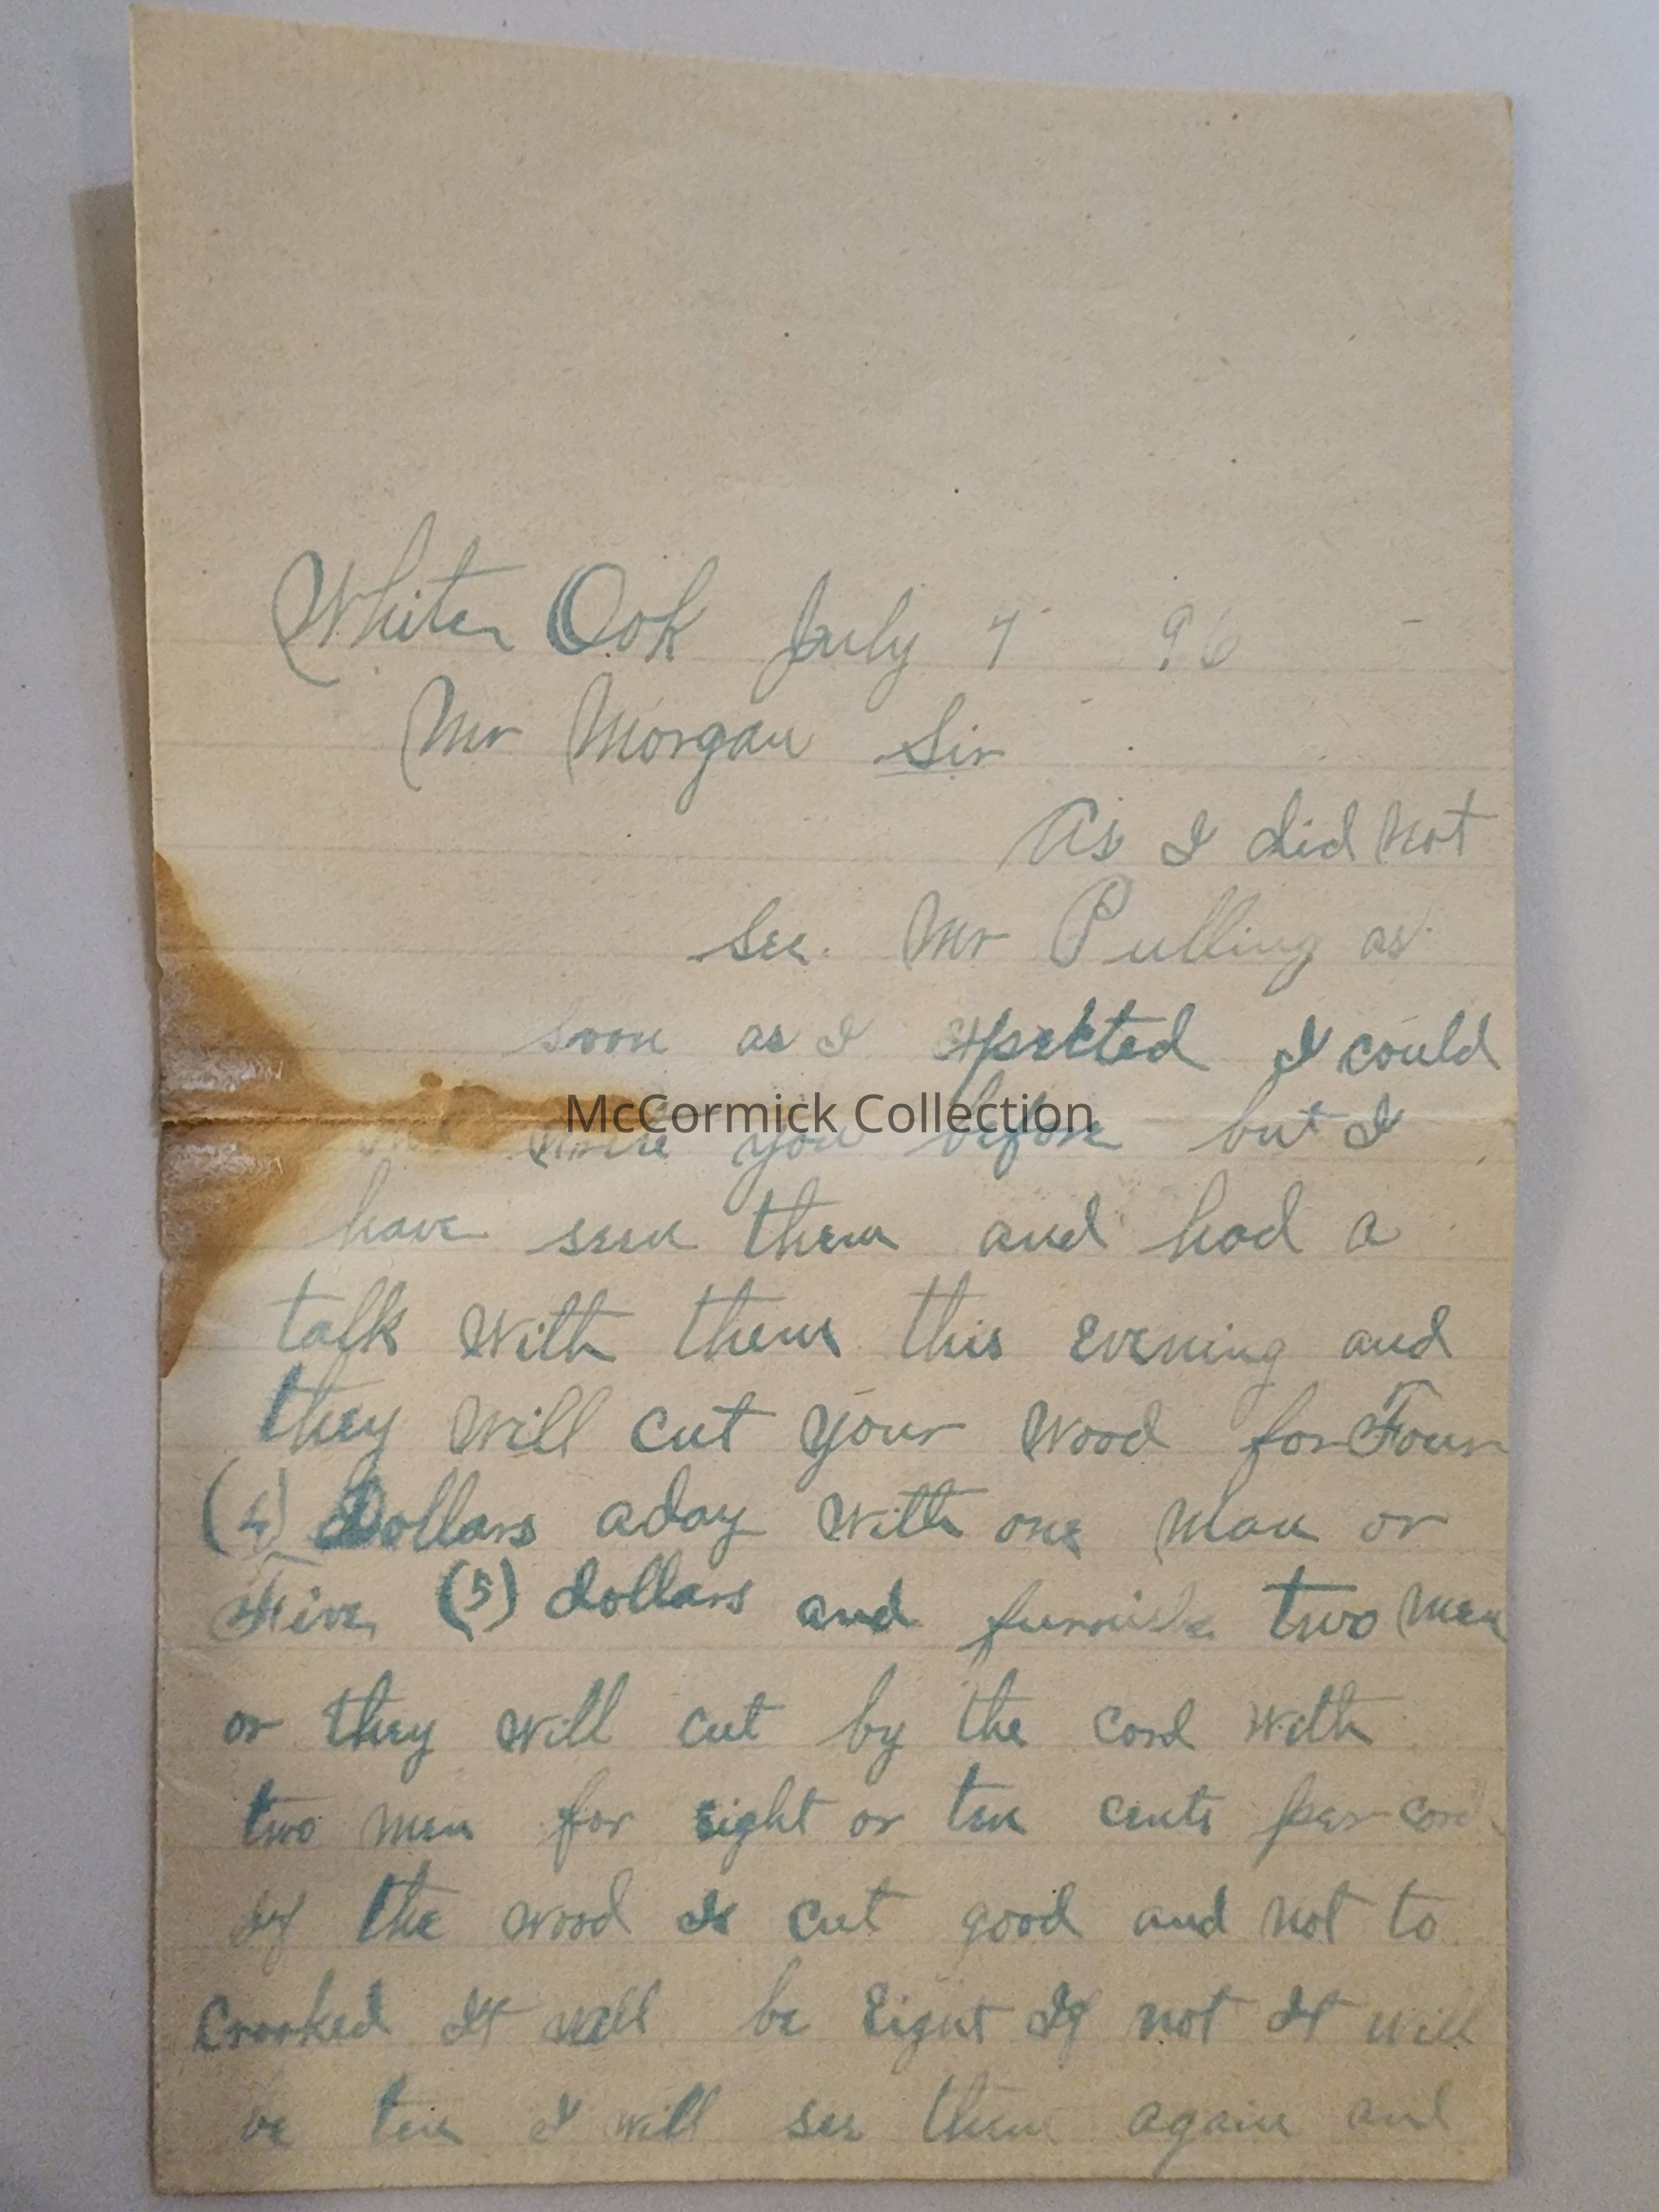 White Ook July 7 96
Mr Morgan Sir
As I did not
See Mr Pulling as
soon as I expected I could
McCormick Collection
you before but I
have seen them and had a
talk with them this Evening and
they will cut your wood for Four
(4) Dollars aday with one man or
Five (5) dollars and furnish two men
or they will cut by the cord with
two men for eight or ten cents per cord
If the wood Is cut good and not to
Crooked It will be Eight If not It will
be ten I will see them again and